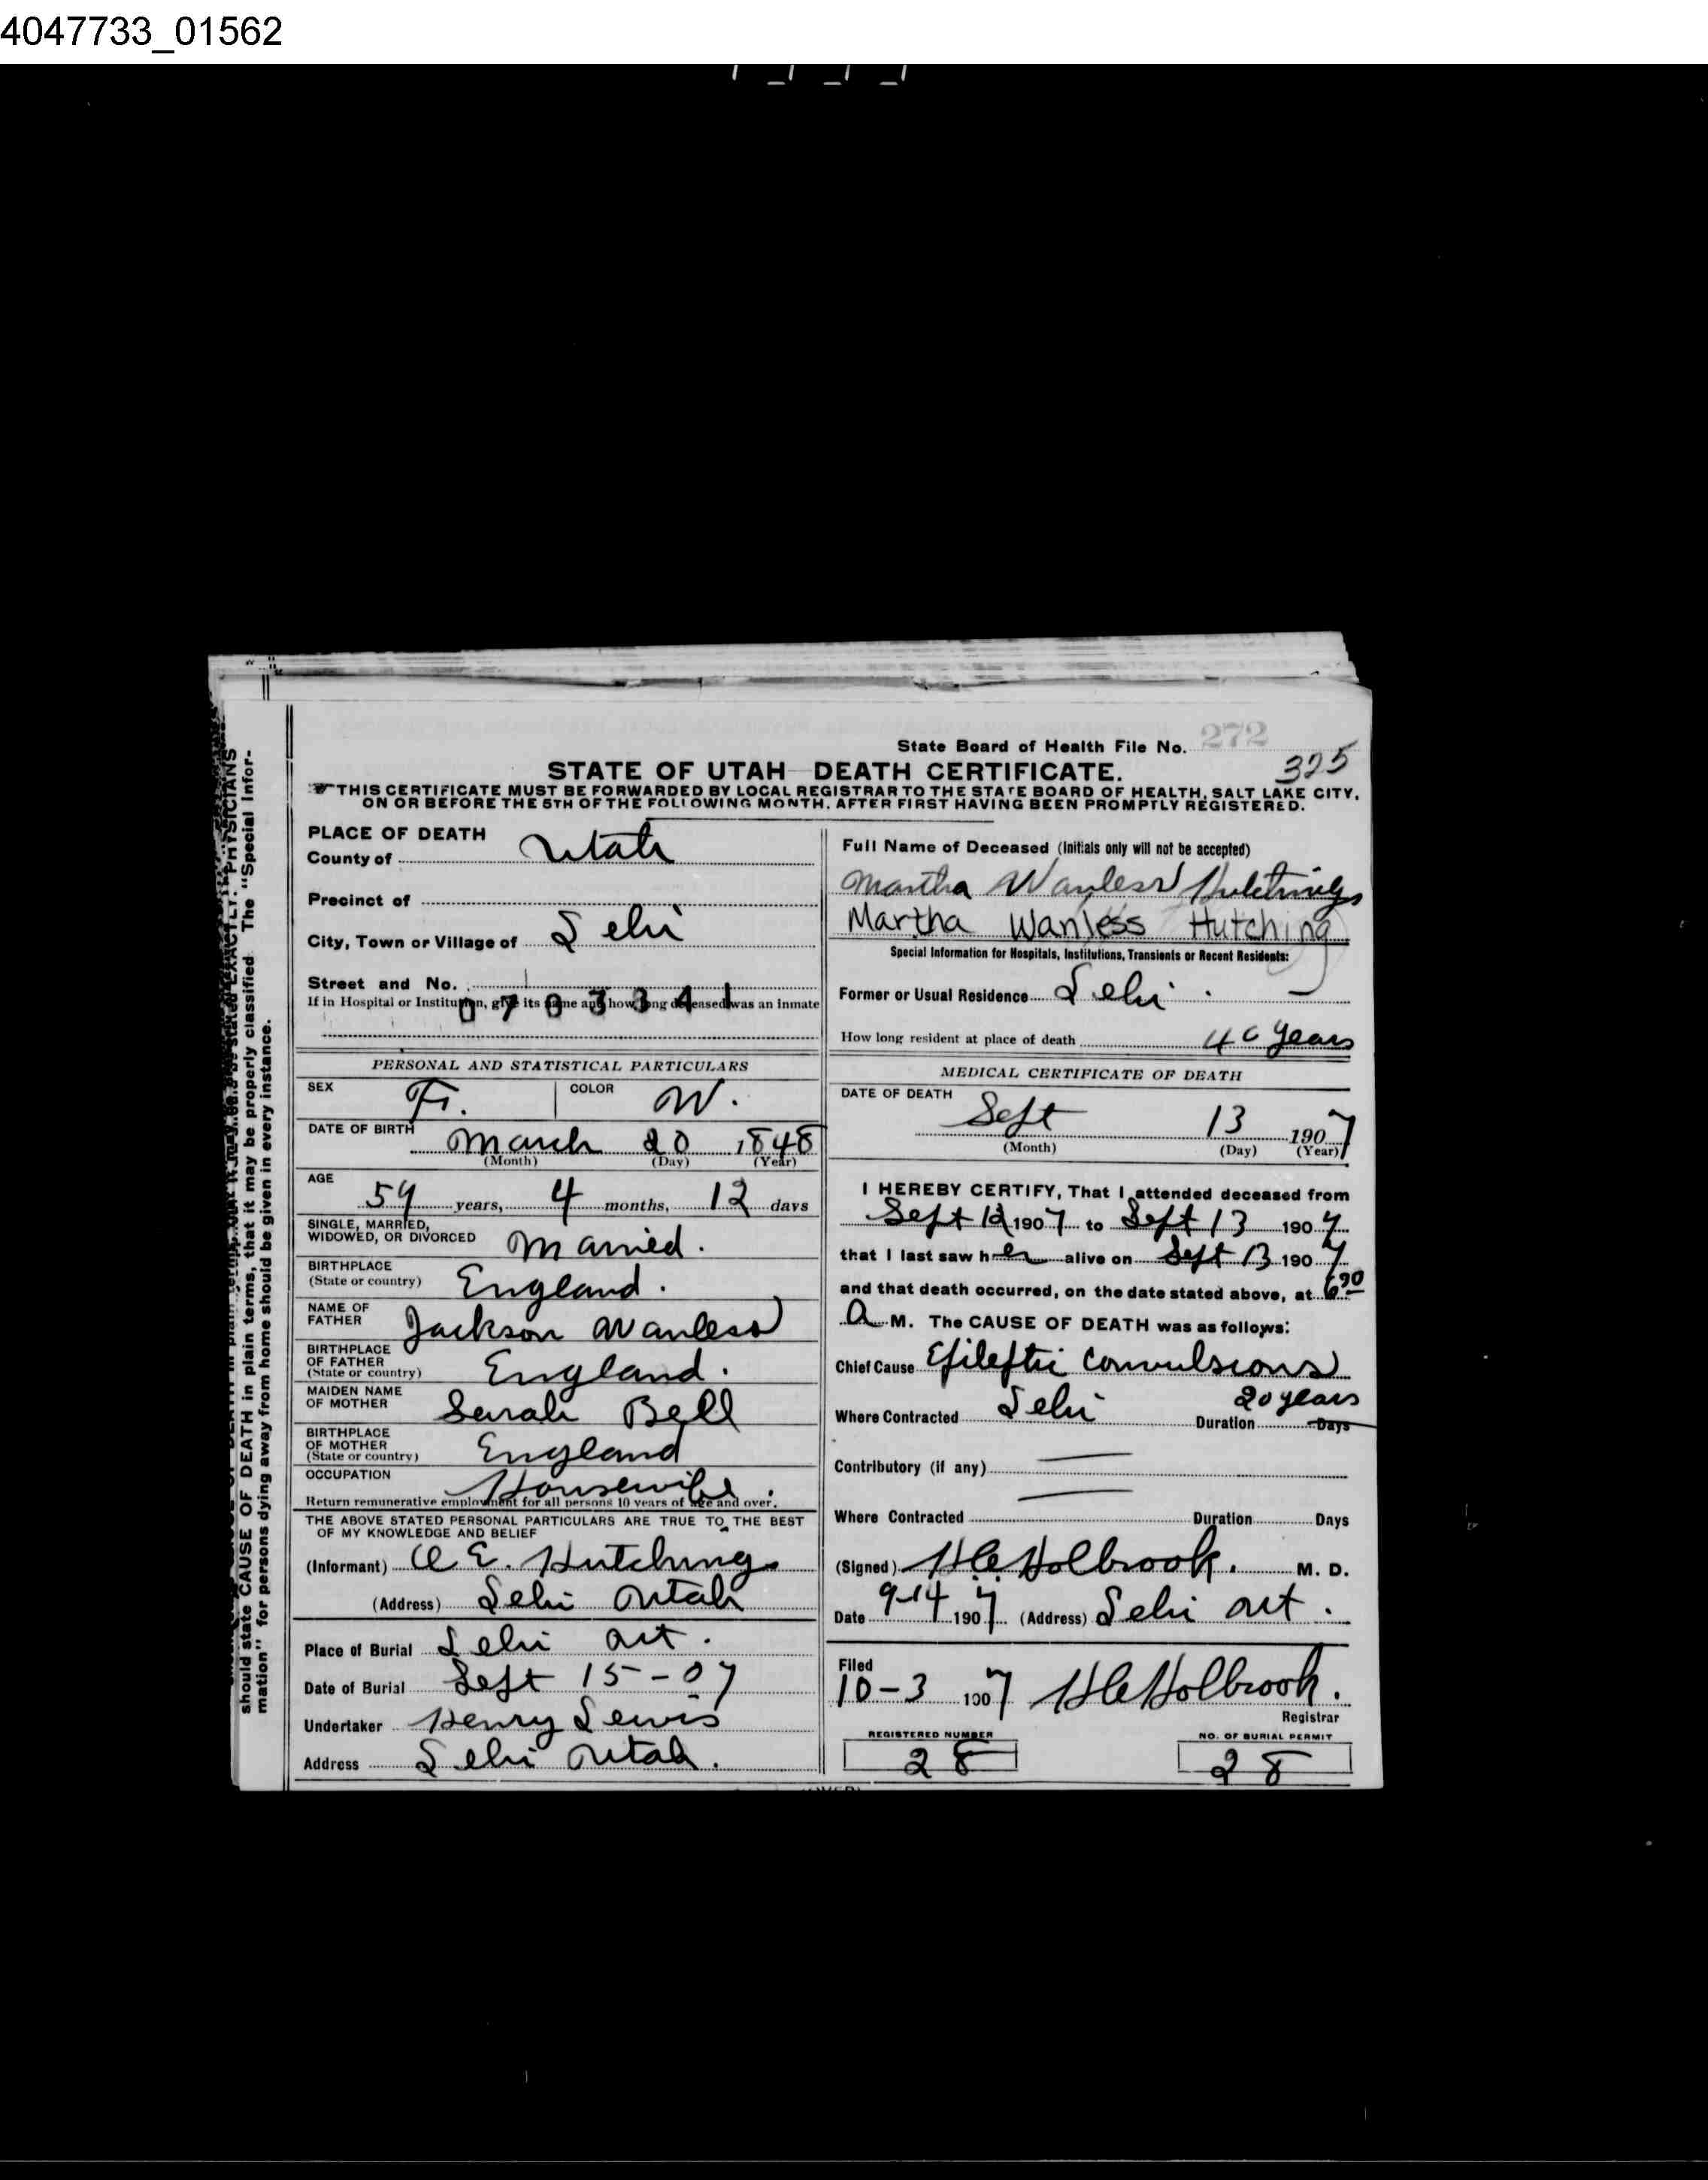 4047733_01562
State Board of Health File No. 272
325
STATE OF UTAH—DEATH CERTIFICATE.
THIS CERTIFICATE MUST BE FORWARDED BY LOCAL REGISTRAR TO THE STATE BOARD OF HEALTH, SALT LAKE CITY,
ON OR BEFORE THE 5TH OF THE FOLLOWING MONTH, AFTER FIRST HAVING BEEN PROMPTLY REGISTERED.
PLACE OF DEATH
County of Utah
Precinct of
City, Town or Village of Lehi
Street and No.
If in Hospital or Institution, give its name and how long deceased was an inmate
070334
PERSONAL AND STATISTICAL PARTICULARS
SEX F. COLOR W.
DATE OF BIRTH March 20 1848
(Month) (Day) (Year)
AGE 59 years, 4 months, 12 days
SINGLE, MARRIED,
WIDOWED, OR DIVORCED Married.
BIRTHPLACE
(State or country) England.
NAME OF
FATHER Jackson Wanless
BIRTHPLACE
OF FATHER
(State or country) England.
MAIDEN NAME
OF MOTHER Sarah Bell
BIRTHPLACE
OF MOTHER
(State or country) England
OCCUPATION Housewife.
Return remunerative employment for all persons 10 years of age and over.
THE ABOVE STATED PERSONAL PARTICULARS ARE TRUE TO THE BEST
OF MY KNOWLEDGE AND BELIEF
(Informant) E. Hutchings
(Address) Lehi Utah
Place of Burial Lehi Ut.
Date of Burial Sept 15-07
Undertaker Henry Lewis
Address Lehi Utah.
Full Name of Deceased (Initials only will not be accepted)
Martha Wanless Hutchings
Martha Wanless Hutching
Special Information for Hospitals, Institutions, Transients or Recent Residents:
Former or Usual Residence Lehi.
How long resident at place of death 40 years
MEDICAL CERTIFICATE OF DEATH
DATE OF DEATH Sept 13 1907
(Month) (Day) (Year)
I HEREBY CERTIFY, That I attended deceased from
Sept 12 1907 to Sept 13 1907
that I last saw her alive on Sept 13 1907
and that death occurred, on the date stated above, at 6 30
A M. The CAUSE OF DEATH was as follows:
Chief Cause Epileptic Convulsions
Where Contracted Lehi Duration 20 years Days
Contributory (if any)
Where Contracted Duration Days
(Signed) H Holbrook. M. D.
Date 9-14 1907 (Address) Lehi Ut.
Filed
10-3 1907 H Holbrook.
Registrar
REGISTERED NUMBER
28
NO. OF BURIAL PERMIT
28
should state CAUSE OF DEATH in plain terms, that it may be properly classified. The "Special Infor-
mation" for persons dying away from home should be given in every instance.